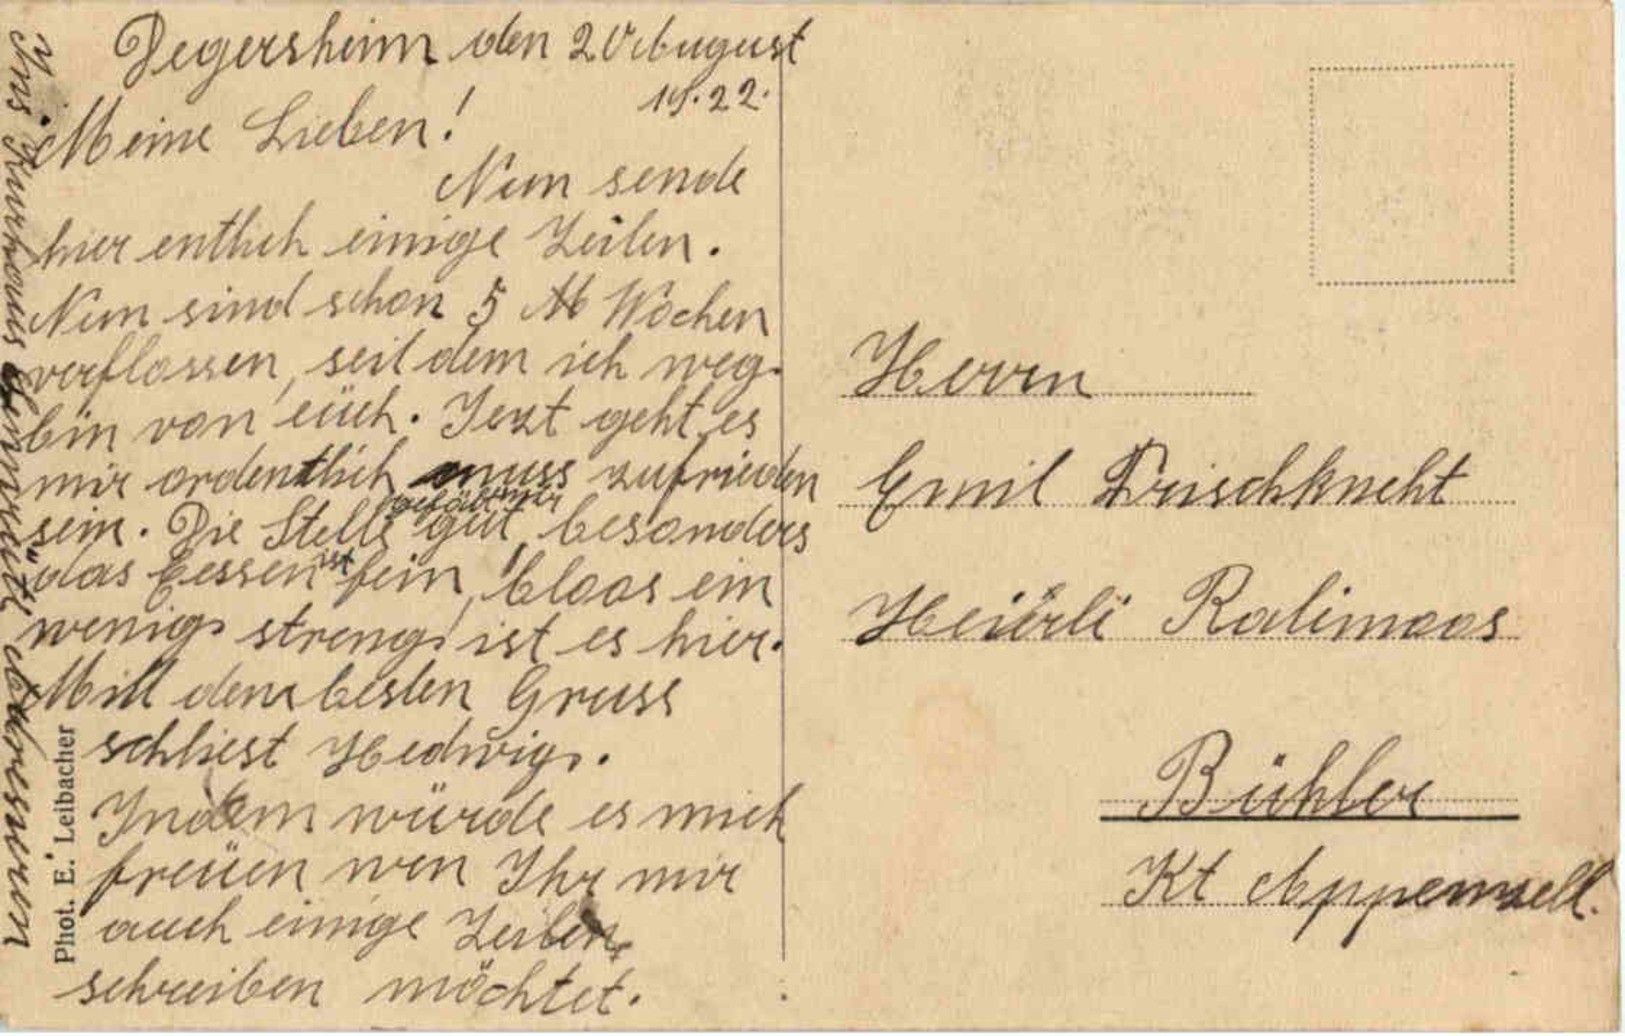 Degersheim den 20 August
19.22.
Meine Lieben!
Nun sende
hier entlich einige Zeilen.
Nun sind schon 5 M Wochen
verflossen, seit dem ich weg-
bin von euch. Jezt geht es
mir ordentlich muss zufrieden
sein. Die Stelle gefällt mir gut, besonders
das Eessen ist fein, bloos ein
wenig streng ist es hier.
Mitt dem besten Gruss
schliest Hedwig.
Indem würde es mich
freuen wen Ihr mir
auch einige Zeilen
schreiben möchtet.
Ins Kurhaus adressieren
Phot. E. Leibacher
Herrn
Emil Frischkneht
Heierli Ralimoos
Bühler
Kt Appenzell.